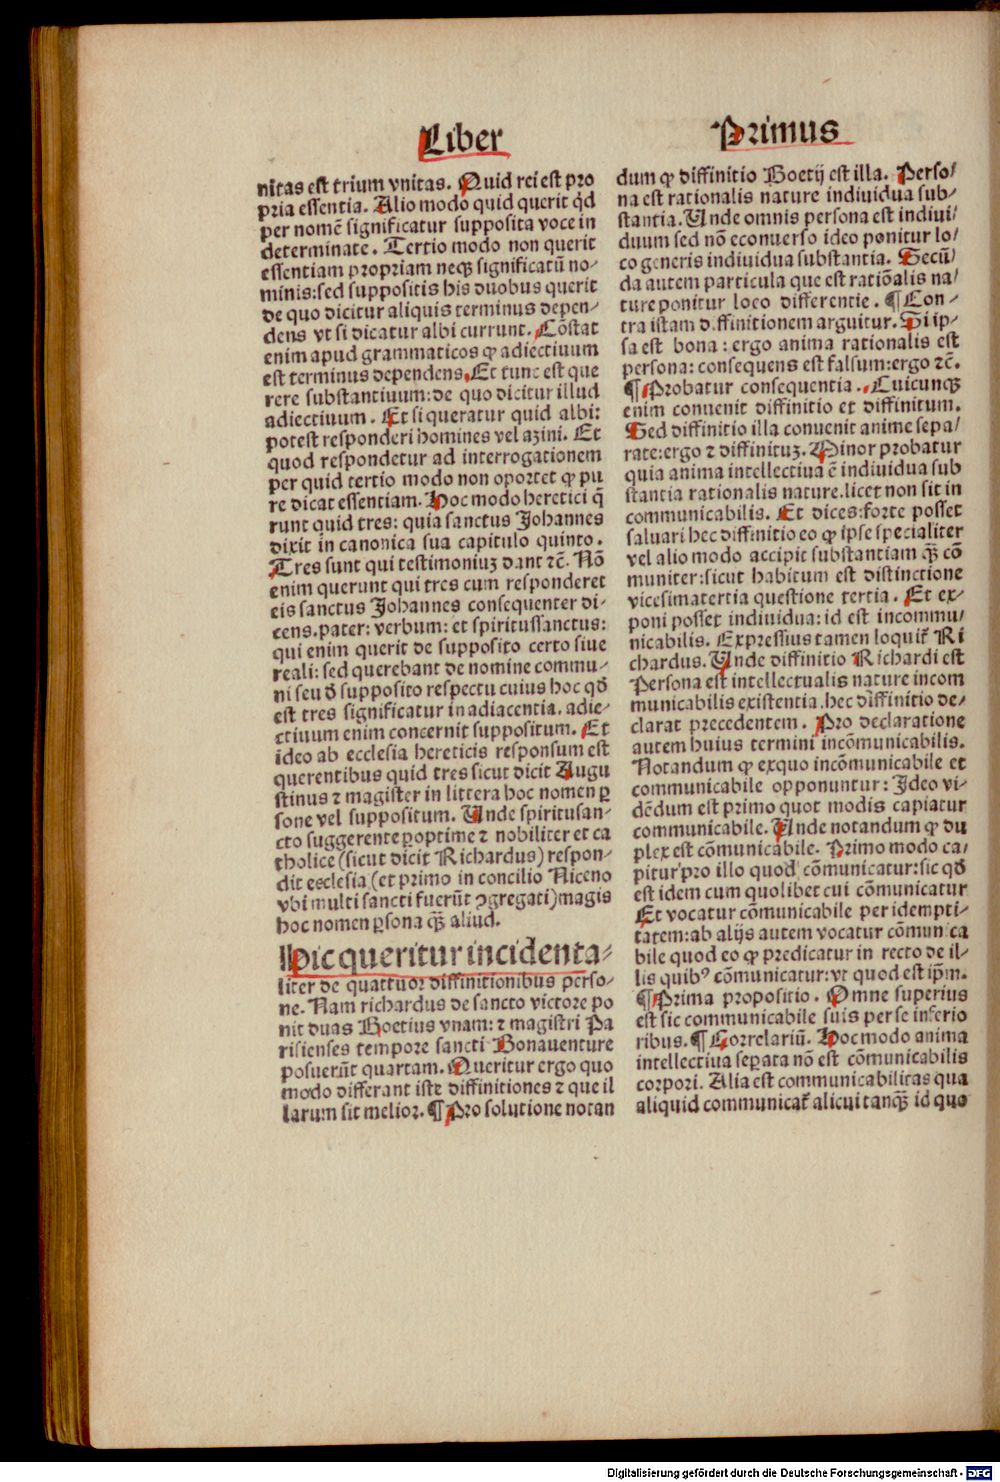 Liber
Primus
nitas est trium vnitas. Quid rei est pro
pria essentia. Alio modo quid querit qd̄
per nomē significatur supposita voce in
determinate. Tertio modo non querit
essentiam propriam neqꝫ significatū no-
minis:sed suppositis his duobus querit
de quo dicitur aliquis terminus depen-
dens vt si dicatur albi currunt. Cōstat
enim apud grammaticos ꝙ adiectiuum
est terminus dependens. Et tunc est que
rere substantiuum:de quo dicitur illud
adiectiuum. Et si queratur quid albi:
potest responderi homines vel azini. Et
quod respondetur ad interrogationem
per quid tertio modo non oportet ꝙ pu
re dicat essentiam. Hoc modo heretici q̄
runt quid tres: quia sanctus Johannes
dixit in canonica sua capitulo quinto.
Tres sunt qui testimoniuꝫ dant ꝛc̄. Nō
enim querunt qui tres cum responderet
eis sanctus Johannes consequenter di-
cens.pater: verbum: et spiritussanctus:
qui enim querit de supposito certo siue
reali: sed querebant de nomine commu-
ni seu đ supposito respectu cuius hoc qđ
est tres significatur in adiacentia. adie-
ctiuum enim concernit suppositum. Et
ideo ab ecclesia hereticis responsum est
querentibus quid tres sicut dicit Augu
stinus ⁊ magister in littera hoc nomen ꝑ
sone vel suppositum. Unde spiritusan-
cto suggerente ꝑoptime ⁊ nobiliter et ca
tholice (sicut dicit Richardus) respon-
dit ecclesia (et primo in concilio Niceno
vbi multi sancti fuerūt ꝯgregati) magis
hoc nomen ꝑsona qꝫ̄ aliud.
Hic queritur incidenta-
liter de quattuor diffinitionibus perso-
ne. Nam richardus de sancto victore po
nit duas Boetius vnam: ⁊ magistri Pa
risienses tempore sancti Bonauenture
posuerūt quartam. Queritur ergo quo
modo differant iste diffinitiones ⁊ que il
larum sit melior. ¶ Pro solutione notan
dum ꝙ diffinitio Boetij est illa. Perso/
na est rationalis nature indiuidua sub-
stantia. Unde omnis persona est indiui/
duum sed nō econuerso ideo ponitur lo/
co generis indiuidua substantia. Secū/
da autem particula que est ratiōalis na/
ture ponitur loco differentie. ¶ Con-
tra istam d.ffinitionem arguitur. Si ip-
sa est bona: ergo anima rationalis est
persona: consequens est falsum:ergo ꝛc̄.
¶ Probatur consequentia. Cuicunqꝫ
enim conuenit diffinitio et diffinitum.
Sed diffinitio illa conuenit anime sepa/
rate:ergo ⁊ diffinituꝫ. Minor probatur
quia anima intellectiua ē indiuidua sub
stantia rationalis nature.licet non sit in
communicabilis. Et dices:forte posset
saluari hec diffinitio eo ꝙ ipse specialiter
vel alio modo accipit substantiam qꝫ̄ cō
muniter:sicut habitum est distinctione
vicesimatertia questione tertia. Et ex-
poni posset indiuidua: id est incommu/
nicabilis. Expressius tamen loquit̄ Ri
chardus. Unde diffinitio Richardi est
Persona est intellectualis nature incom
municabilis existentia.hec diffinitio de-
clarat precedentem. Pro declaratione
autem huius termini incōmunicabilis.
Notandum ꝙ exquo incōmunicabile et
communicabile opponuntur: Ideo vi-
dēdum est primo quot modis capiatur
communicabile. Unde notandum ꝙ du
plex est cōmunicabile. Primo modo ca/
pitur pro illo quod cōmunicatur:sic qđ
est idem cum quolibet cui cōmunicatur
Et vocatur cōmunicabile per idempti-
tatem:ab alijs autem vocatur cōmunica
bile quod eo ꝙ predicatur in recto de il-
lis quibꝰ cōmunicatur:vt quod est ip̄m.
¶ Prima propositio. Omne superius
est sic communicabile suis per se inferio
ribus. ¶ Correlariū. Hoc modo anima
intellectiua seꝑata nō est cōmunicabilis
corpori. Alia est communicabilitas qua
aliquid communicat̄ alicui tanqꝫ̄ id quo
Digitalisierung gefördert durch die Deutsche Forschungsgemeinschaft - DFG